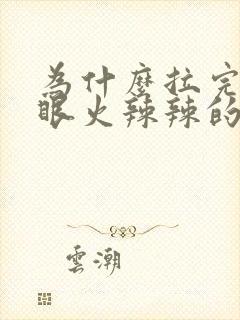 為什麼拉完
眼火辣辣的
雲潮